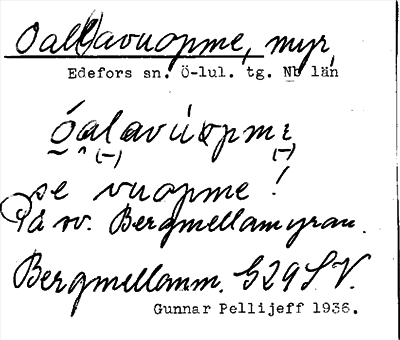 Oal(l)avuopme, myr,
Edefors sn. Ö-lul. tg. Nb län
óalavúopmε
(-) (-)
se vuopme!
På sv. Bergmellanmyran.
Bergmellanm. G29 S.V.
Gunnar Pellijeff 1936.